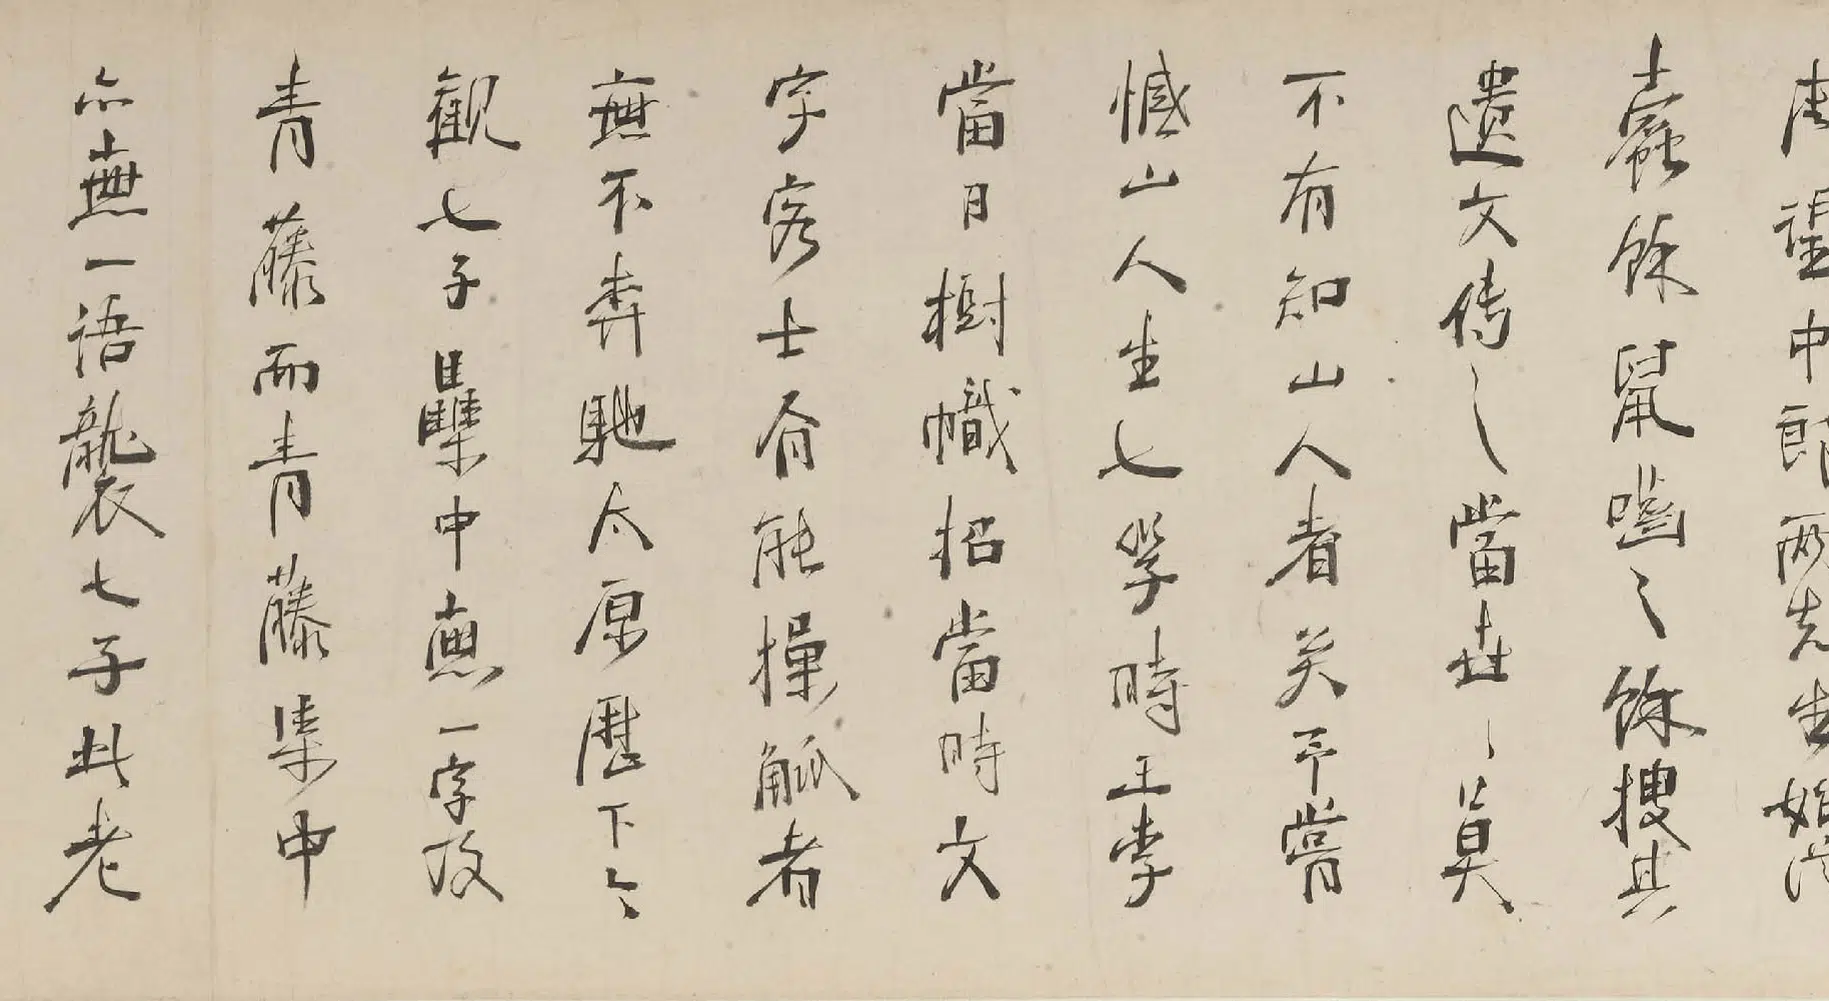 周望中郎两先生始從
蠹餘鼠啮之餘搜其
遺文传之當世世莫
不有知山人者矣予嘗
憾山人生七子時王李
當日樹幟招當時文
字客士有能操觚者
無不奔馳太原歷下今
觀七子集中無一字及
青藤而青藤集中
亦無一语襲七子此老